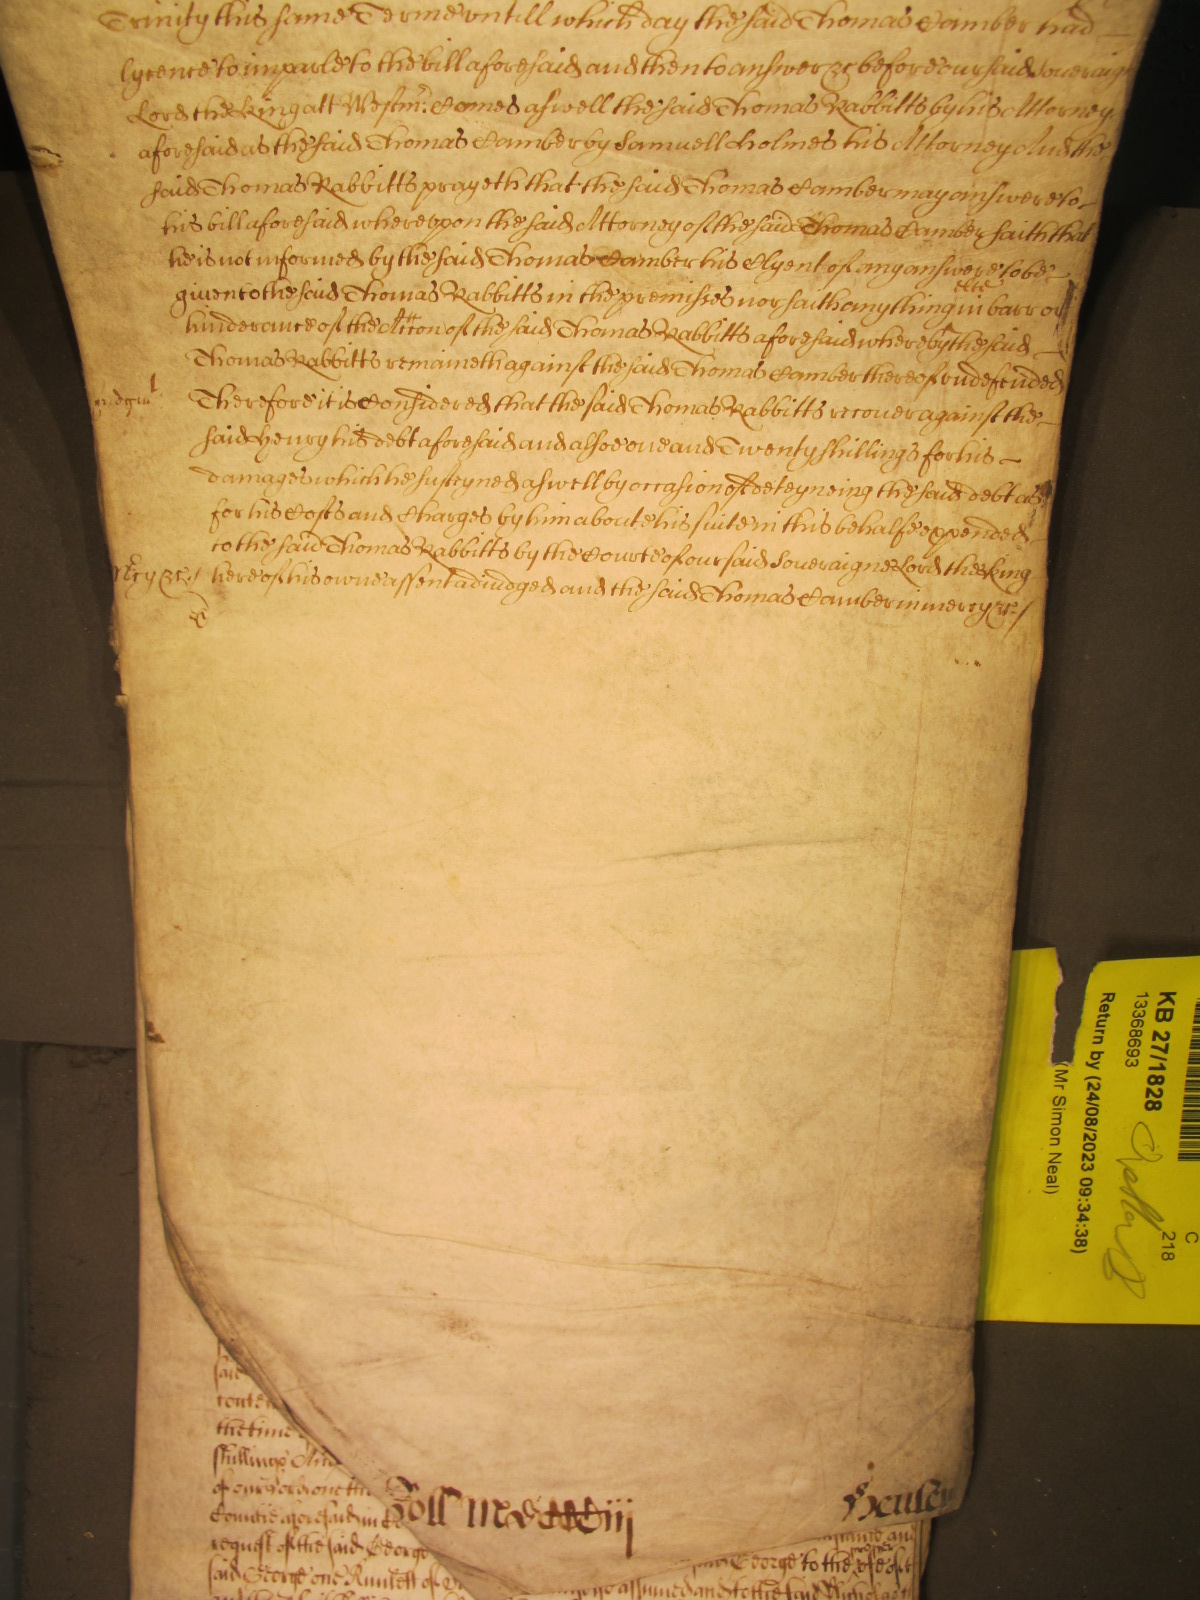 Trinity this same Terme untill which day the said Thomas Camber had
lycence to imparle to the bill aforesaid and then to answer &c before our said Soveraigne
Lord the King att Westmr: Comes aswell the said Thomas Rabbitts by his Attorney
aforesaid as the said Thomas Camber by Samuell Holmes his Attorney And the
said Thomas Rabbitts prayeth that the said Thomas Camber may answere to
his bill aforesaid whereupon the said Attorney of the said Thomas Camber saith that
he is not informed by the said Thomas Camber his Clyent of any answere to be
given to the said Thomas Rabbitts in the premisses nor saith any thing else in barr or
hinderance of the Accon of the said Thomas Rabbitts aforesaid whereby the said
Thomas Rabbitts remaineth against the said Thomas Camber thereof undefended
Judgmt
Therefore it is Considered that the said Thomas Rabbitts recover against the
said Henry his debt aforesaid and alsoe one and Twenty shillings for his
damages which he susteyned aswell by occasion of deteyneing the said debt as
for his Costs and Charges by him about his suite in this behalfe expended
to the said Thomas Rabbitts by the Courte of our said Soveraigne Lord the King
Mercy &c./
here of his owne assent adjudged and the said Thomas Camber in mercy &c./
KB 27/1828
13368693
Return by (24/08/2023 09:34:38)
(Mr Simon Neal)
C
218
said
the time
shillings
Roll
Henley
Comitie aforesaid in
request of the said George
George to the use of
said George one Runlett of
assumed and to the said Nicholas